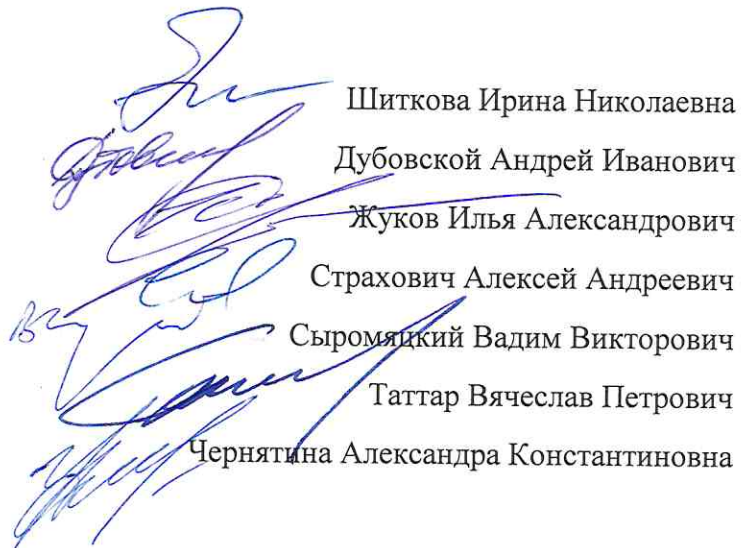 Шиткова Ирина Николаевна
Дубовской Андрей Иванович
Жуков Илья Александрович
Страхович Алексей Андреевич
Сыромяцкий Вадим Викторович
Таттар Вячеслав Петрович
Чернятина Александра Константиновна